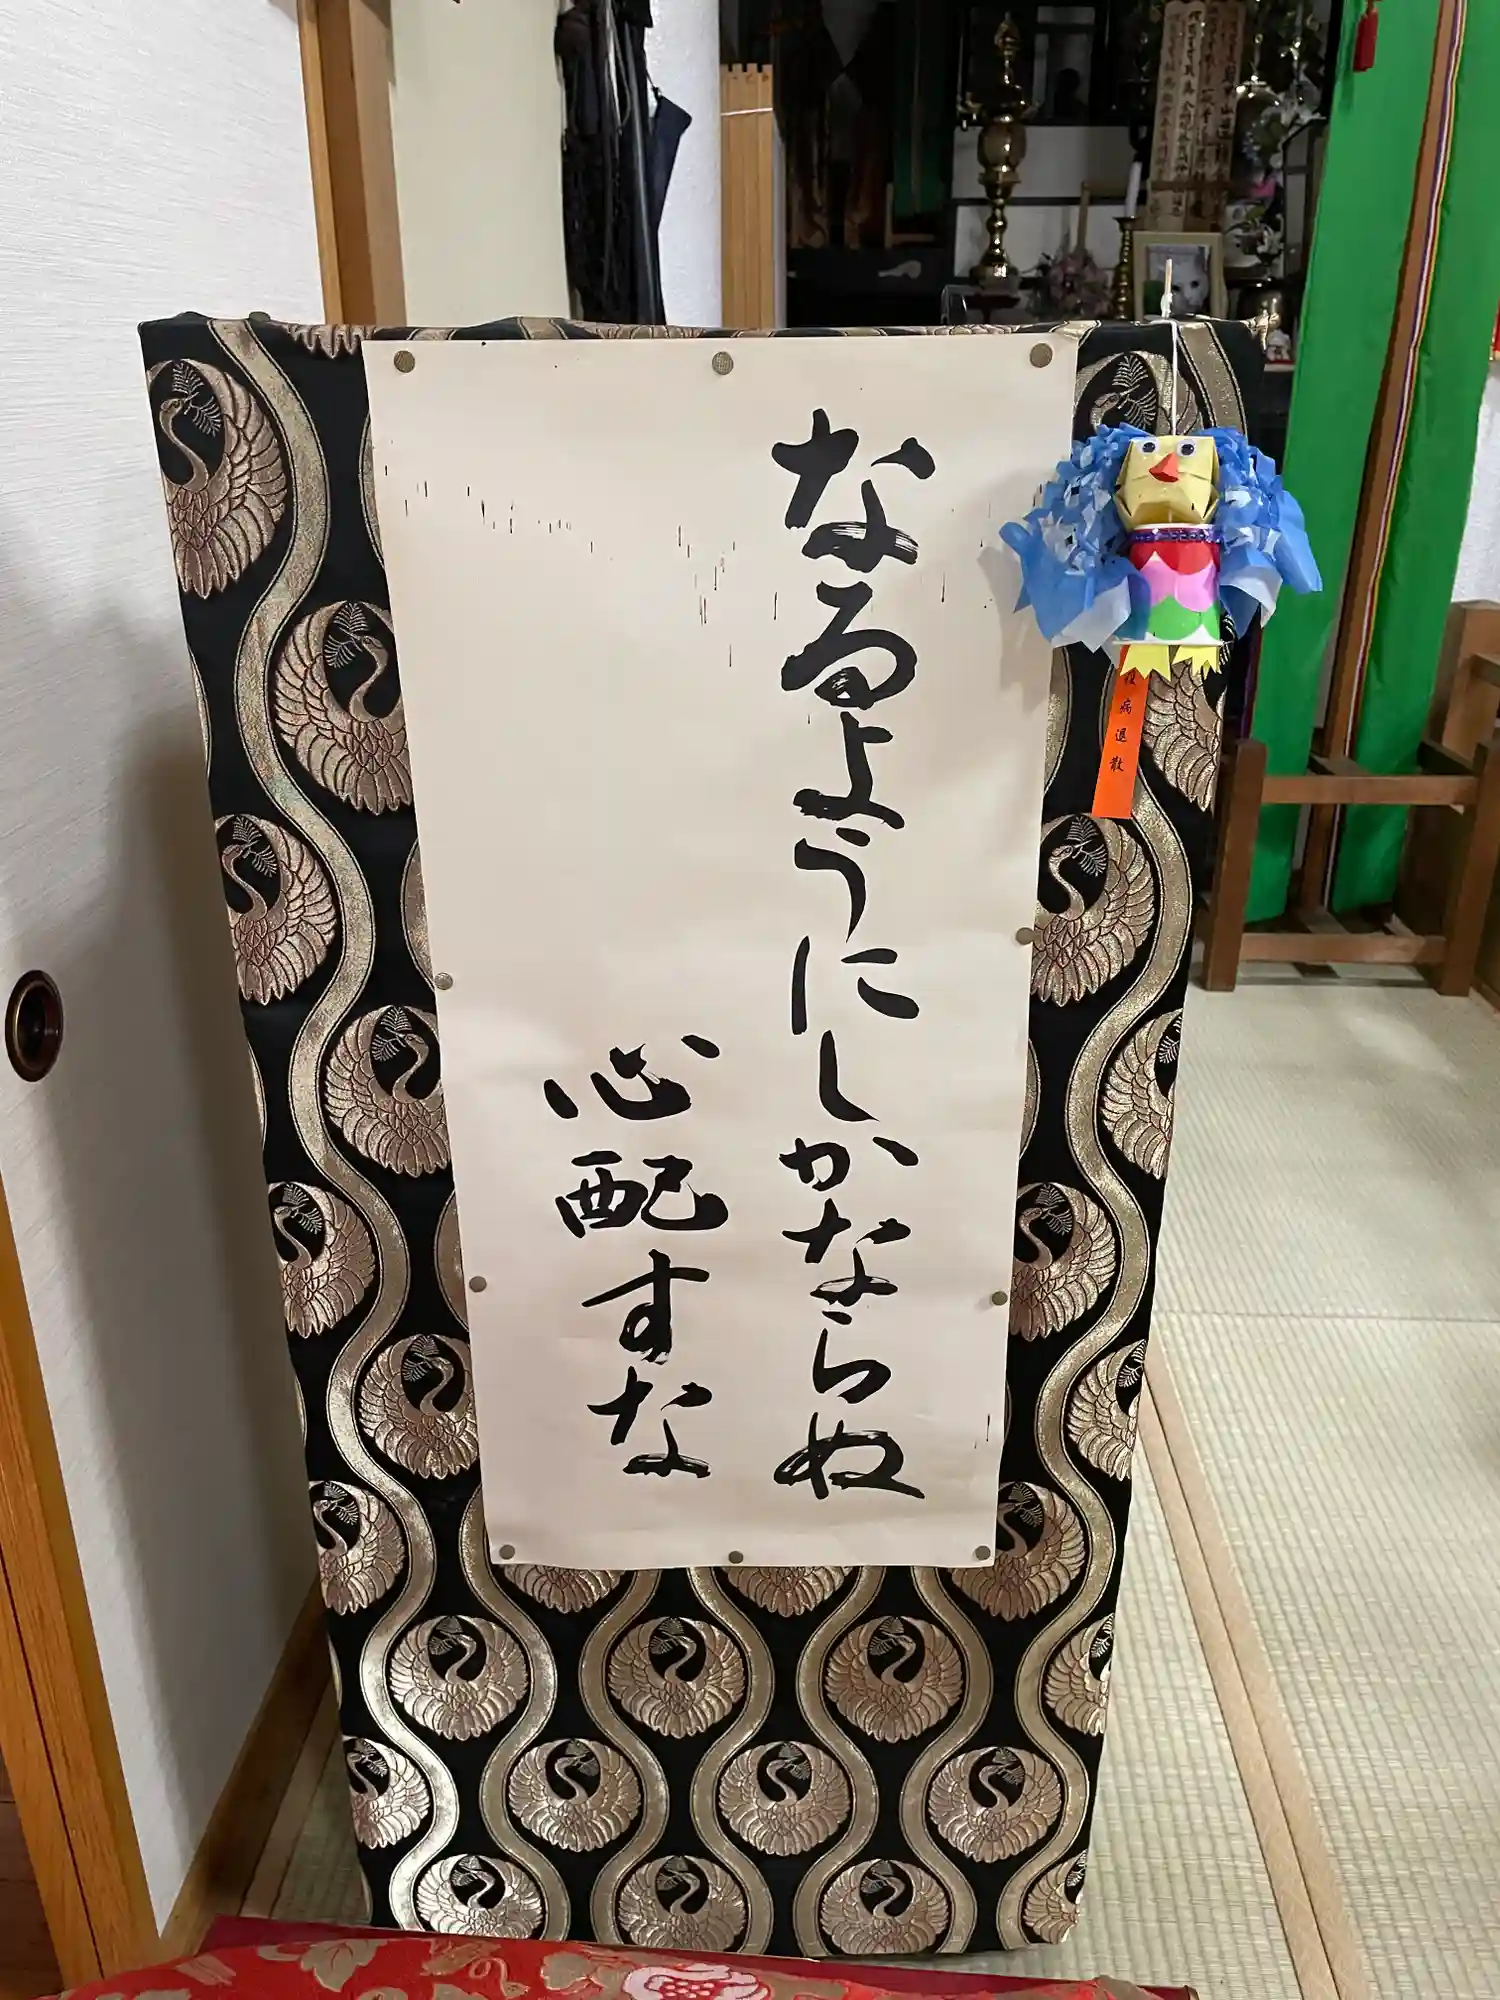 なるようにしかならぬ
心配すな
疫病退散